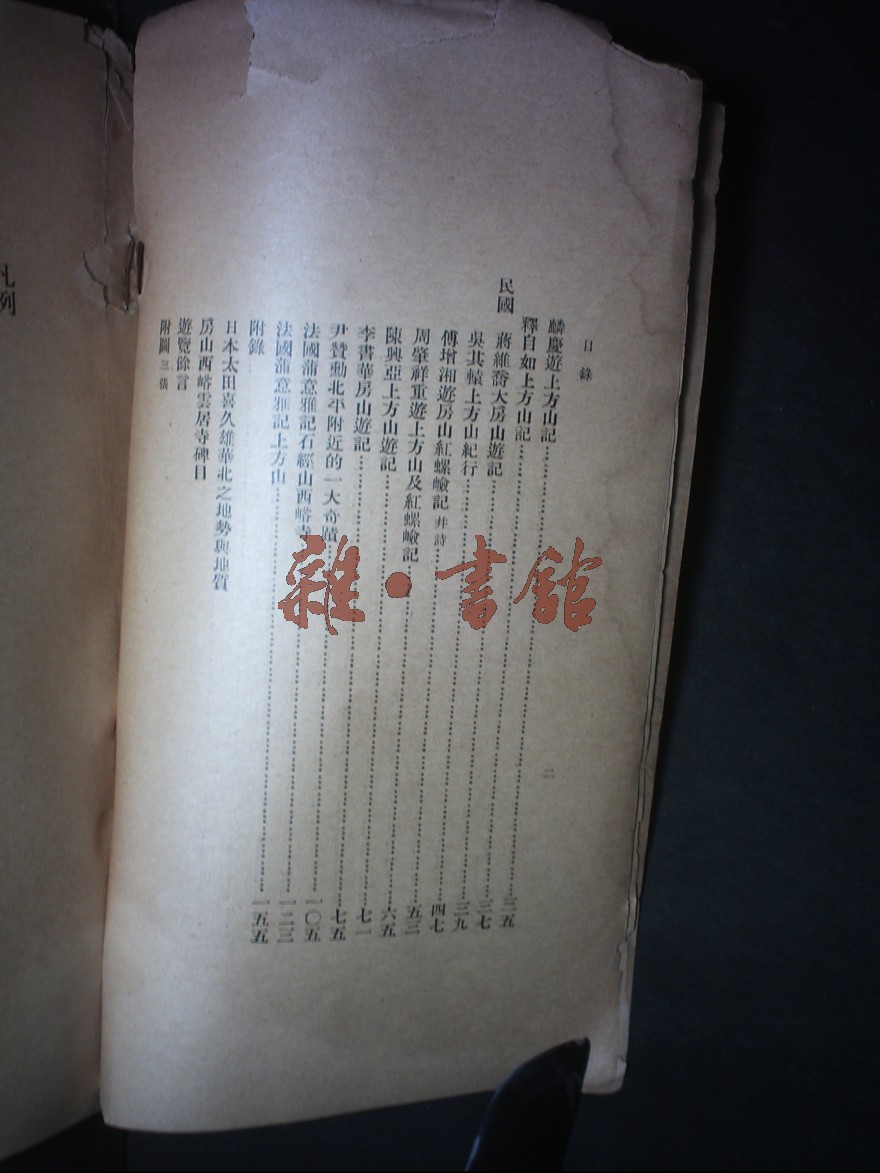 目錄 二
麟慶遊上方山記 三五
釋自如上方山記 三七
民國 蔣維喬大房山遊記 三九
吳其轅上方山紀行 四七
傅增湘遊房山紅螺嶮記 并詩 五三
周肇祥重遊上方山及紅螺嶮記 六五
陳興亞上方山遊記 七一
李書華房山遊記 七五
尹贊勳北平附近的一大奇蹟 一〇五
法國蒲意雅記石經山西峪寺 一二三
法國蒲意雅記上方山 一五五
附錄
日本太田喜久雄華北之地勢與地質
房山西峪雲居寺碑目
遊覽餘言
附圖三張
凡例
雜·書館